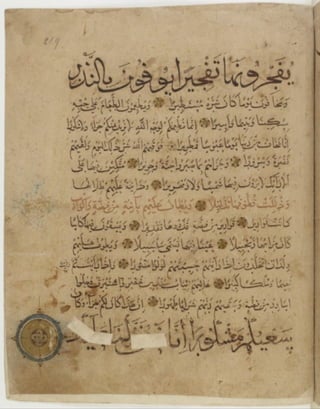 219
يفجرونها تفجيرا يوفون بالنذر
ويخافون يوما كان شره مستطيرا ويطعمون الطعام على حبه
مسكينا ويتيما وأسيرا إنما نطعمكم لوجه الله لا نريد منكم جزاء ولا شكورا
إنا نخاف من ربنا يوما عبوسا قمطريرا فوقاهم الله شر ذلك اليوم ولقاهم
نضرة وسرورا وجزاهم بما صبروا جنة وحريرا متكئين فيها على
الأرائك لا يرون فيها شمسا ولا زمهريرا ودانية عليهم ظلالها
وذللت قطوفها تذليلا ويطاف عليهم بآنية من فضة وأكواب
كانت قواريرا قوارير من فضة قدروها تقديرا ويسقون فيها كأسا
كان مزاجها زنجبيلا عينا فيها تسمى سلسبيلا ويطوف عليهم
ولدان مخلدون إذا رأيتهم حسبتهم لؤلؤا منثورا وإذا رأيت ثم
نعيما وملكا كبيرا عاليهم ثياب سندس خضر وإستبرق وحلوا
أساور من فضة وسقاهم ربهم شرابا طهورا إن هذا كان لكم جزاء وكان
سعيكم مشكورا إنا نحن نزلنا عليك